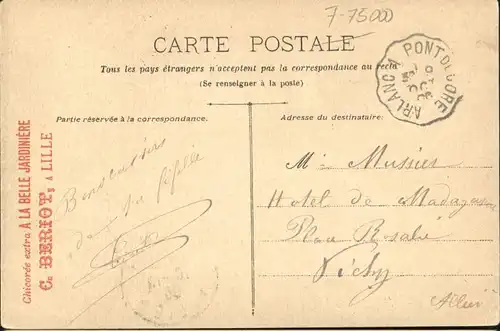 7-75000
CARTE POSTALE
Tous les pays étrangers n'acceptent pas la correspondance au recto
(Se renseigner à la poste)
ARLANC A PONT-DE-DORE
Partie réservée à la correspondance.
Adresse du destinataire:
Chicorée extra A LA BELLE JARDINIÈRE
C. BERIOT, A LILLE
Bons baisers
de ta
M. Mussier
Hotel de Madagascar
Place Rosalie
Vichy
Allier